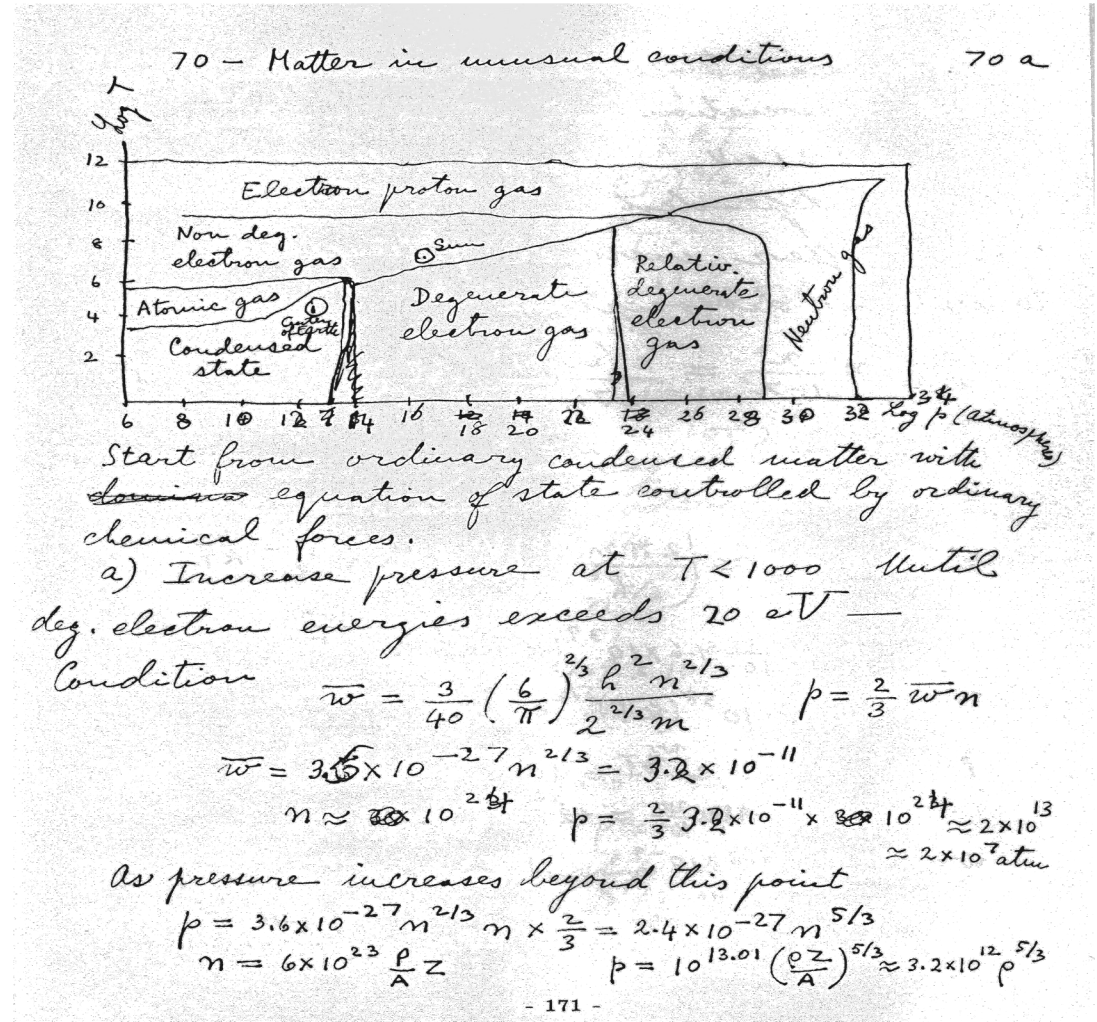 70 – Matter in unusual conditions 70 a
Log T
12
Electron proton gas
10
Non deg.
8
Sun
electron gas
Relativ.
6
Degenerate
degenerate
Atomic gas
electron gas
electron
4
Center
of earth
gas
Neutron gas
Condensed
2
state
6 8 10 12 14 16 18 20 22 24 26 28 30 32 34 Log p (atmospheres)
Start from ordinary condensed matter with
equation of state controlled by ordinary
chemical forces.
a) Increase pressure at T < 1000 Until
deg. electron energies exceeds 20 eV —
Condition w̄ = 3/40 (6/π)^{2/3} h² n^{2/3} / 2^{2/3} m p = 2/3 w̄ n
w̄ = 3.6 × 10^{-27} n^{2/3} = 3.2 × 10^{-11}
n ≈ 10^{24} p = 2/3 3.2 × 10^{-11} × 10^{24} ≈ 2 × 10^{13}
≈ 2 × 10^7 atm
As pressure increases beyond this point
p = 3.6 × 10^{-27} n^{2/3} n × 2/3 = 2.4 × 10^{-27} n^{5/3}
n = 6 × 10^{23} ρ/A Z p = 10^{13.01} (ρZ/A)^{5/3} ≈ 3.2 × 10^{12} ρ^{5/3}
- 171 -